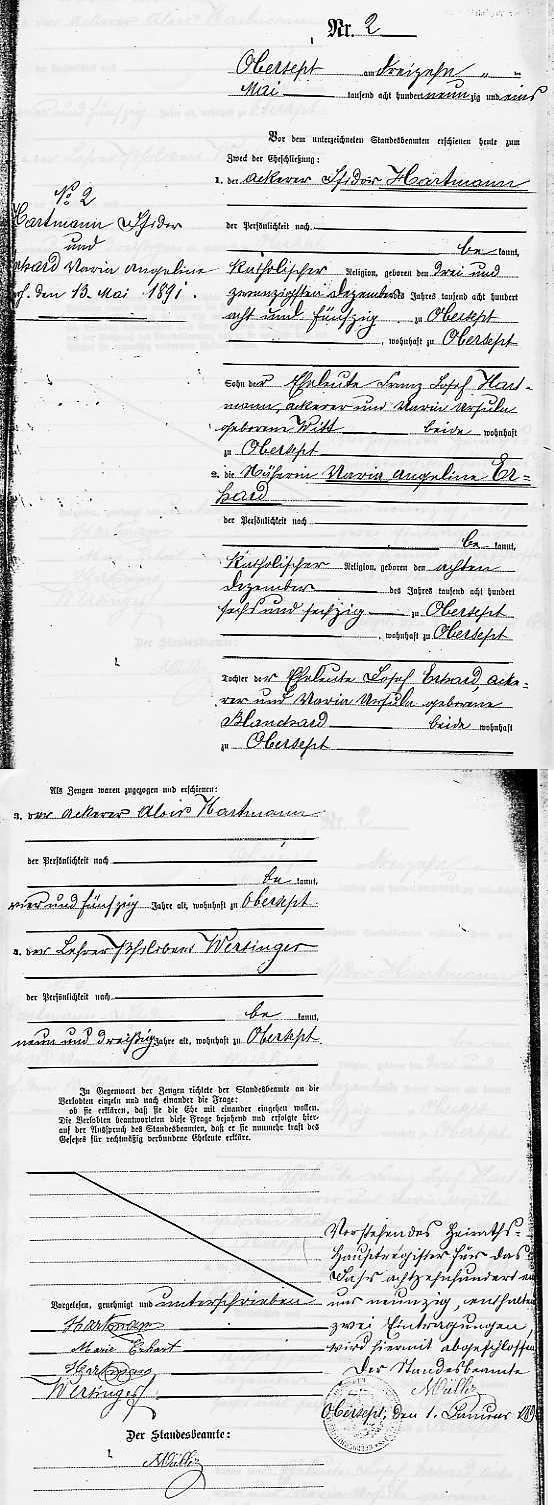 Nr. 2
Obersept am dreizehn ten
Mai tausend acht hundert neunzig und eins
Vor dem unterzeichneten Standesbeamten erschienen heute zum
Zweck der Eheschließung:
1. der Ackerer Isidor Hartmann
der Persönlichkeit nach
be kannt,
katholischer Religion, geboren den drei und
zwanzigsten Dezember des Jahres tausend acht hundert
acht und fünfzig zu Obersept
, wohnhaft zu Obersept
Sohn der Eheleute Franz Josef Hart-
mann, Ackerer und Maria Ursula
geborene Witt beide wohnhaft
zu Obersept
2. die Näherin Maria Angeline Er-
hard
der Persönlichkeit nach
be kannt,
katholischer Religion, geboren den achten
Dezember des Jahres tausend acht hundert
sechs und sechzig zu Obersept
, wohnhaft zu Obersept
Tochter der Eheleute Josef Erhard, Acke-
rer und Maria Ursula geborene
Blanchard beide wohnhaft
zu Obersept
No 2
Hartmann Isidor
und
Erhard Maria Angeline
den 13. Mai 1891.
Als Zeugen waren zugezogen und erschienen:
3. der Ackerer Alois Hartmann
der Persönlichkeit nach
be kannt,
vier und fünfzig Jahre alt, wohnhaft zu Obersept
4. der Lehrer Wersinger
der Persönlichkeit nach
be kannt,
neun und dreißig Jahre alt, wohnhaft zu Obersept.
In Gegenwart der Zeugen richtete der Standesbeamte an die
Verlobten einzeln und nach einander die Frage:
ob sie erklären, daß sie die Ehe mit einander eingehen wollen.
Die Verlobten beantworteten diese Frage bejahend und erfolgte hier-
auf der Ausspruch des Standesbeamten, daß er sie nunmehr kraft des
Gesetzes für rechtmäßig verbundene Eheleute erkläre.
Vorgelesen, genehmigt und unterschrieben
Hartmann
Marie Erhart
Hartmann
Wersinger
Der Standesbeamte:
Müller
Vorstehendes Heiraths-
Hauptregister für das
Jahr achtzehnhundert ein
und neunzig, enthaltend
zwei Eintragungen,
wird hiermit abgeschlossen
Der Standesbeamte
Müller
Obersept, den 1. Januar 189